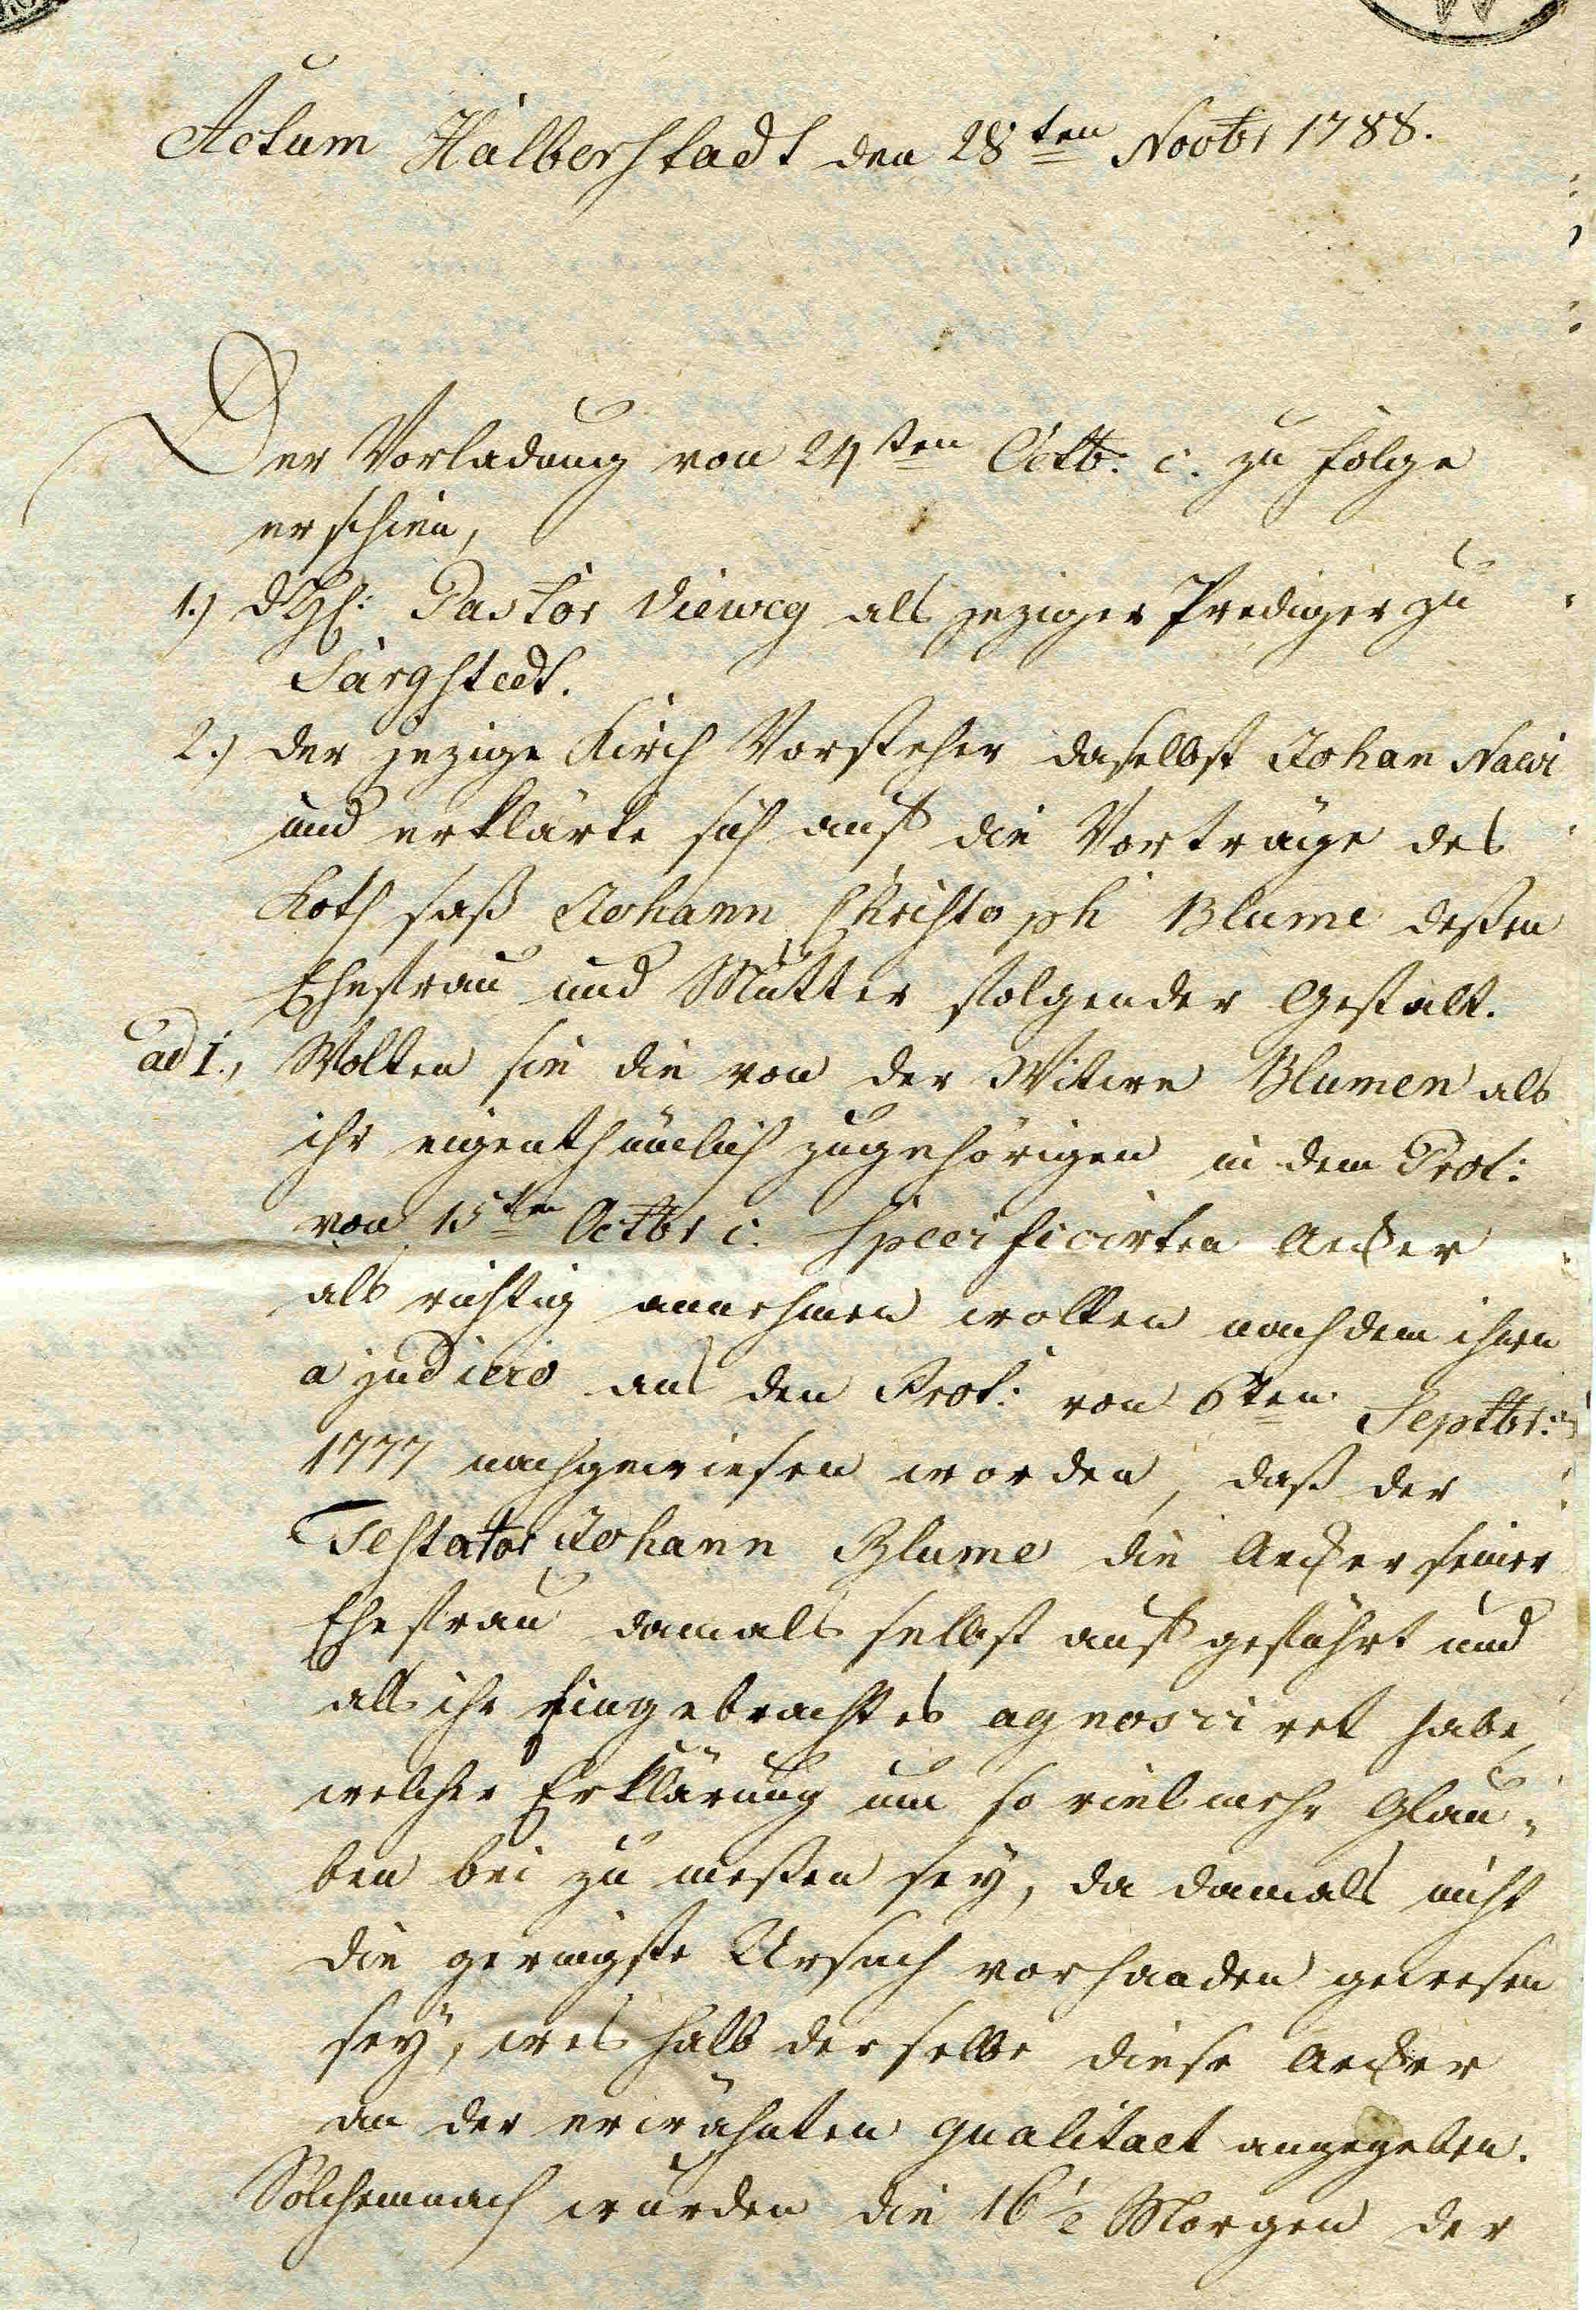 Actum Halberstadt den 28ten Novbr 1788.
Der Vorladung von 24sten Octb: c. zu folge
erschien,
1.) Pastor Vieweg als jeziger Prediger zu
Sargstedt.
2.) der jezige Kirch Vorsteher daselbst Johan
und erklärte sich auf die Vorträge des
Kothsaß Johann Christoph Blume deßen
Ehefrau und Mutter folgender Gestalt.
ad 1., Wolten sie die von der Witwe Blumen als
ihr eigenthümlich zugehörigen in dem Prot:
von 15ten Octbr c. specificirten Aecker
als richtig annehmen wollen nachdem ihnen
a judicio aus den Prot: von 6ten Septbr:
1777 nachgewiesen worden, daß der
Testator Johann Blume die Aecker seiner
Ehefrau damals selbst aufgeführt und
als ihr Eingebrachtes agnosciret habe,
welcher Erklärung um so vielmehr Glau-
ben bei zu meßen sey, da damals nicht
die geringste Ursach vorhanden gewesen
sey, weshalb derselbe diese Aecker
in der erwähnten qualitaet angegeben.
Solchemnach wurden die 16 1/2 Morgen der